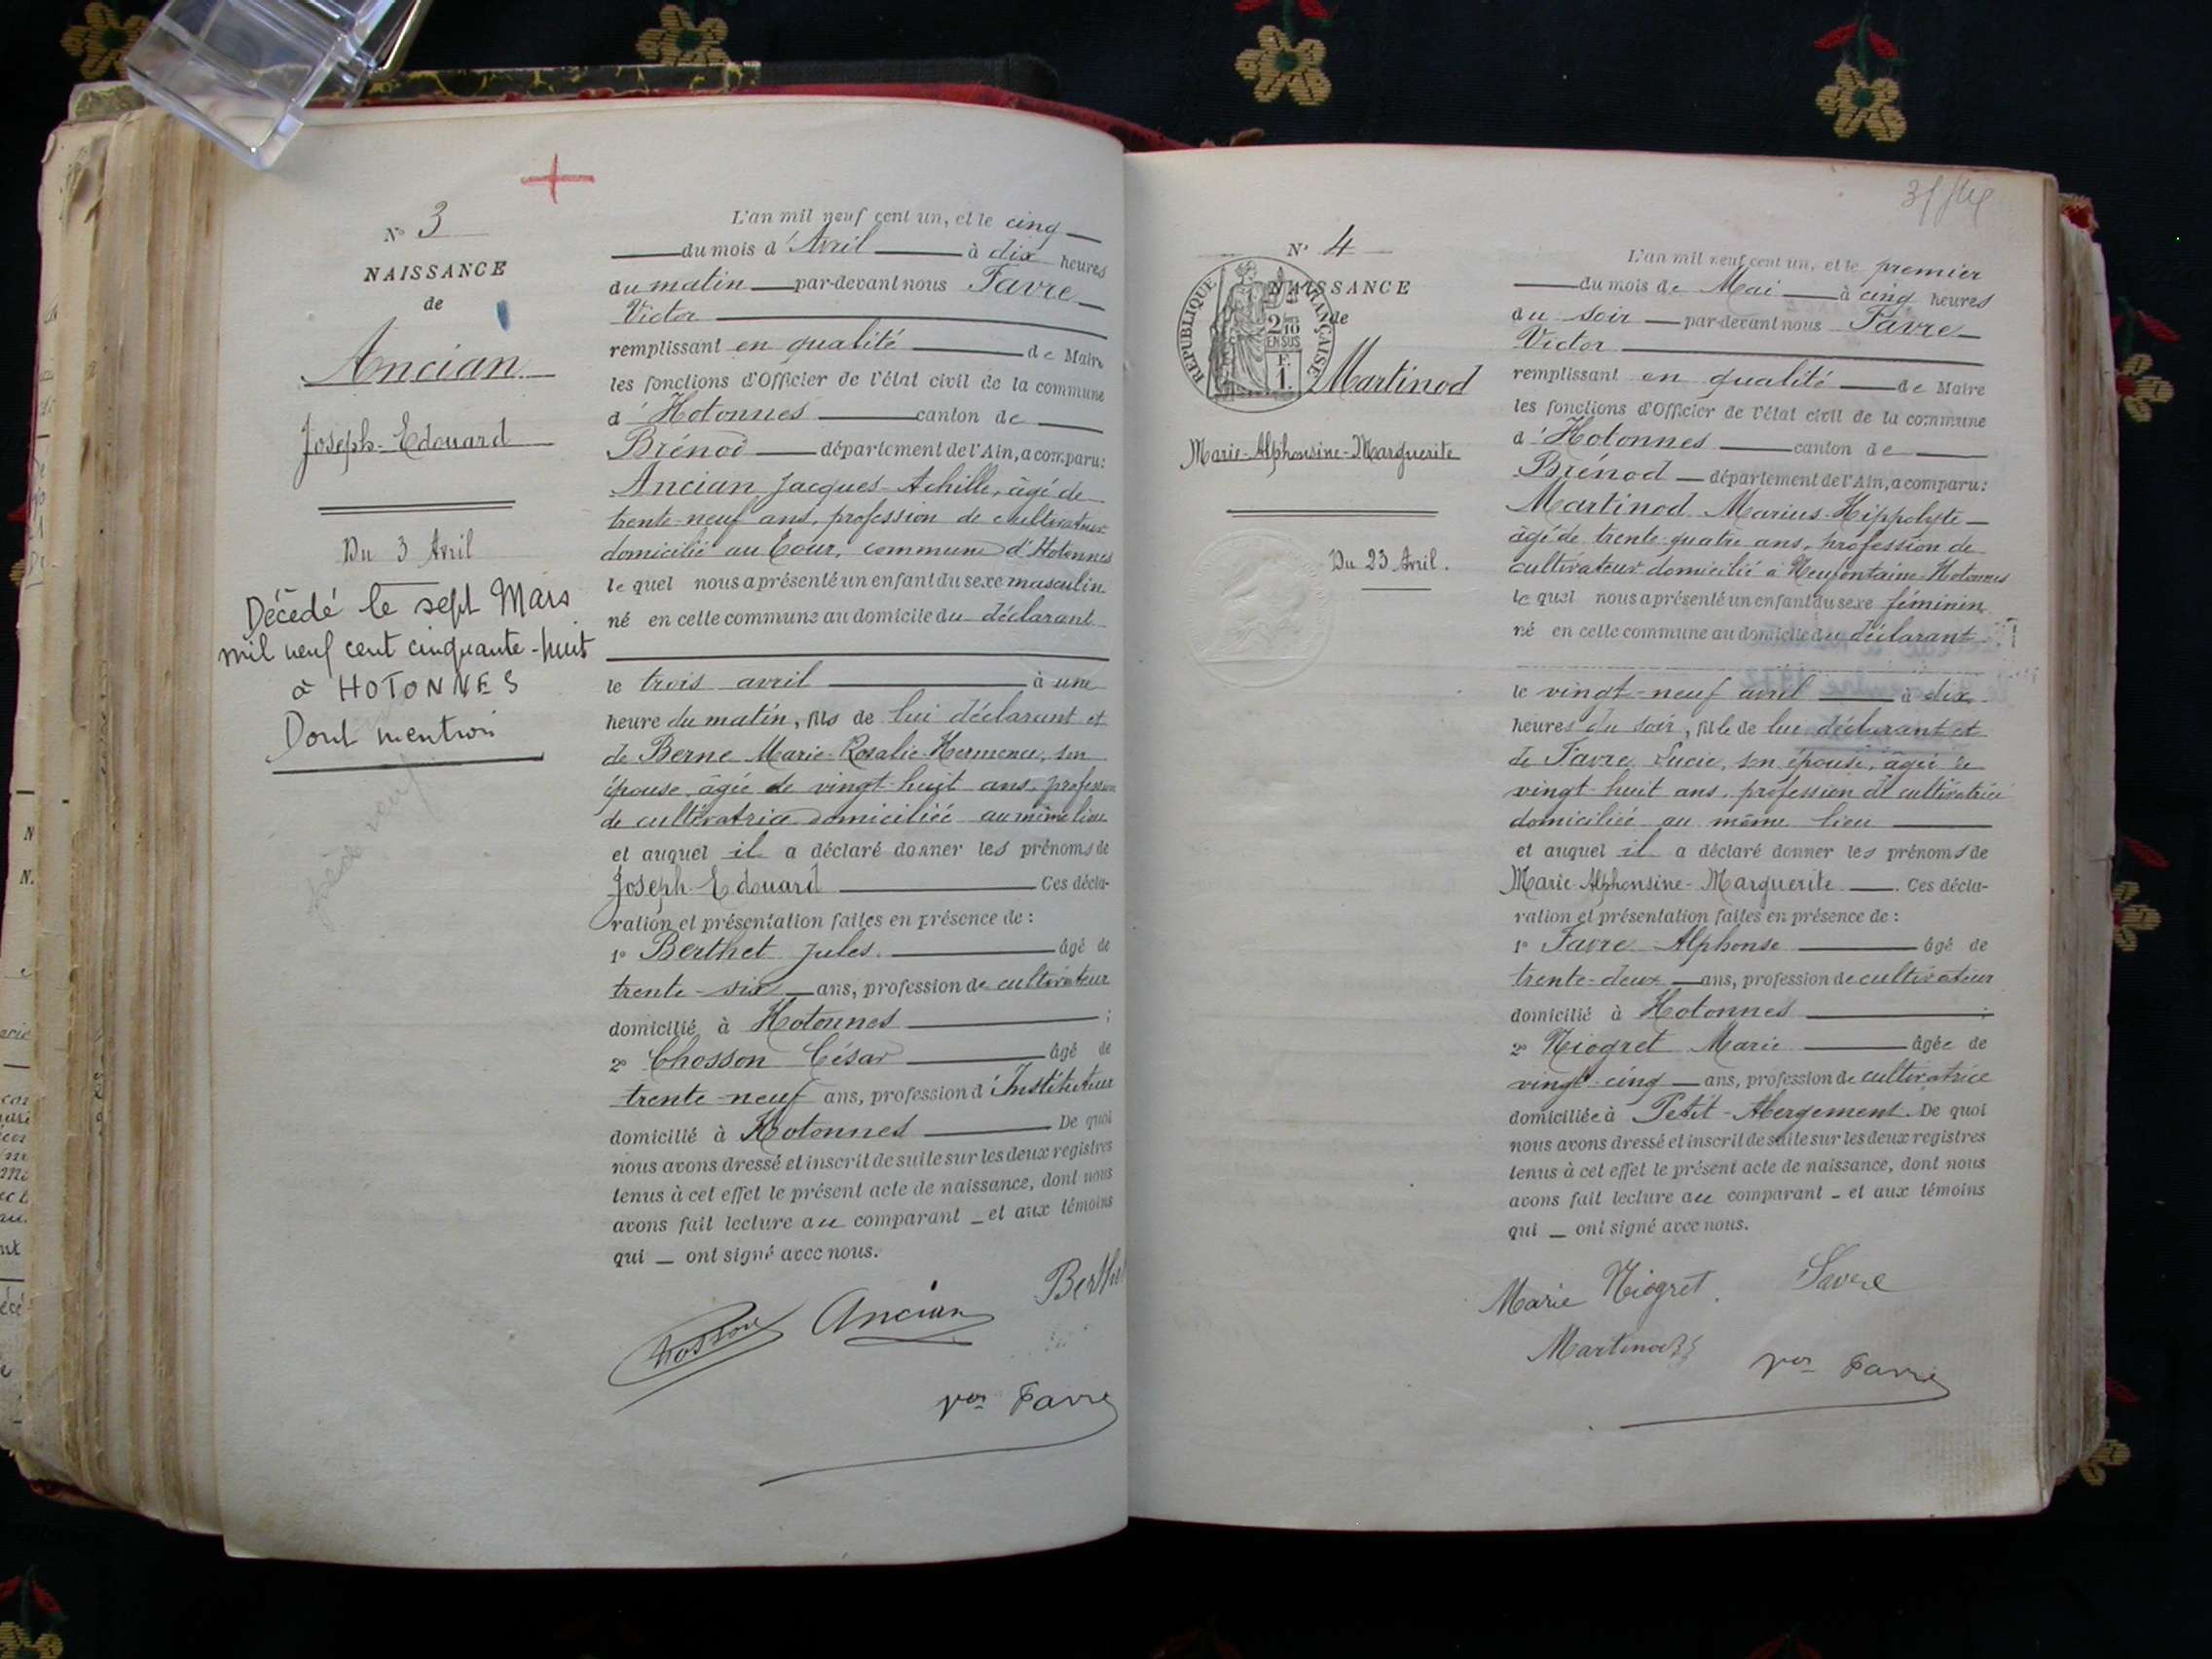 N° 3
NAISSANCE
de
Ancian
Joseph-Edouard
Du 3 Avril
Décédé le sept Mars
mil neuf cent cinquante-huit
à HOTONNES
Dont mention
L'an mil neuf cent un, et le cinq
du mois d'Avril à dix heures
du matin par-devant nous Favre
Victor
remplissant en qualité de Maire
les fonctions d'Officier de l'état civil de la commune
d'Hotonnes canton de
Brénod département de l'Ain, a comparu:
Ancian Jacques-Achille, âgé de
trente-neuf ans, profession de cultivateur
domicilié au Cour, commune d'Hotonnes
lequel nous a présenté un enfant du sexe masculin
né en cette commune au domicile du déclarant
le trois avril à une
heure du matin, fils de lui déclarant et
de Berne Marie-Rosalie-Hermence, son
épouse, âgée de vingt-huit ans, profession
de cultivatrice domiciliée au même lieu
et auquel il a déclaré donner les prénoms de
Joseph-Edouard Ces décla-
ration et présentation faites en présence de :
1° Berthet Jules âgé de
trente-six ans, profession de cultivateur
domicilié à Hotonnes ;
2° Chosson César âgé de
trente-neuf ans, profession d'Instituteur
domicilié à Hotonnes De quoi
nous avons dressé et inscrit de suite sur les deux registres
tenus à cet effet le présent acte de naissance, dont nous
avons fait lecture au comparant et aux témoins
qui ont signé avec nous.
Chosson Ancian Berth
Vor Favre
N° 4
NAISSANCE
de
RÉPUBLIQUE FRANÇAISE
2/10
EN SUS
F.
1.
Martinod
Marie-Alphonsine-Marguerite
Du 23 Avril.
L'an mil neuf cent un, et le premier
du mois de Mai à cinq heures
du soir par-devant nous Favre
Victor
remplissant en qualité de Maire
les fonctions d'Officier de l'état civil de la commune
d'Hotonnes canton de
Brénod département de l'Ain, a comparu:
Martinod Marius-Hippolyte
âgé de trente-quatre ans, profession de
cultivateur domicilié à Hotonnes
lequel nous a présenté un enfant du sexe féminin
né en cette commune au domicile du déclarant
le vingt-neuf avril à dix
heures du soir, fille de lui déclarant et
de Favre Lucie, son épouse, âgée de
vingt-huit ans, profession de cultivatrice
domiciliée au même lieu
et auquel il a déclaré donner les prénoms de
Marie-Alphonsine-Marguerite. Ces décla-
ration et présentation faites en présence de :
1° Favre Alphonse âgé de
trente-deux ans, profession de cultivateur
domicilié à Hotonnes ;
2° Niogret Marie âgée de
vingt-cinq ans, profession de cultivatrice
domiciliée à Petit-Abergement. De quoi
nous avons dressé et inscrit de suite sur les deux registres
tenus à cet effet le présent acte de naissance, dont nous
avons fait lecture au comparant et aux témoins
qui ont signé avec nous.
Marie Niogret. Favre
Martinod
Vor Favre